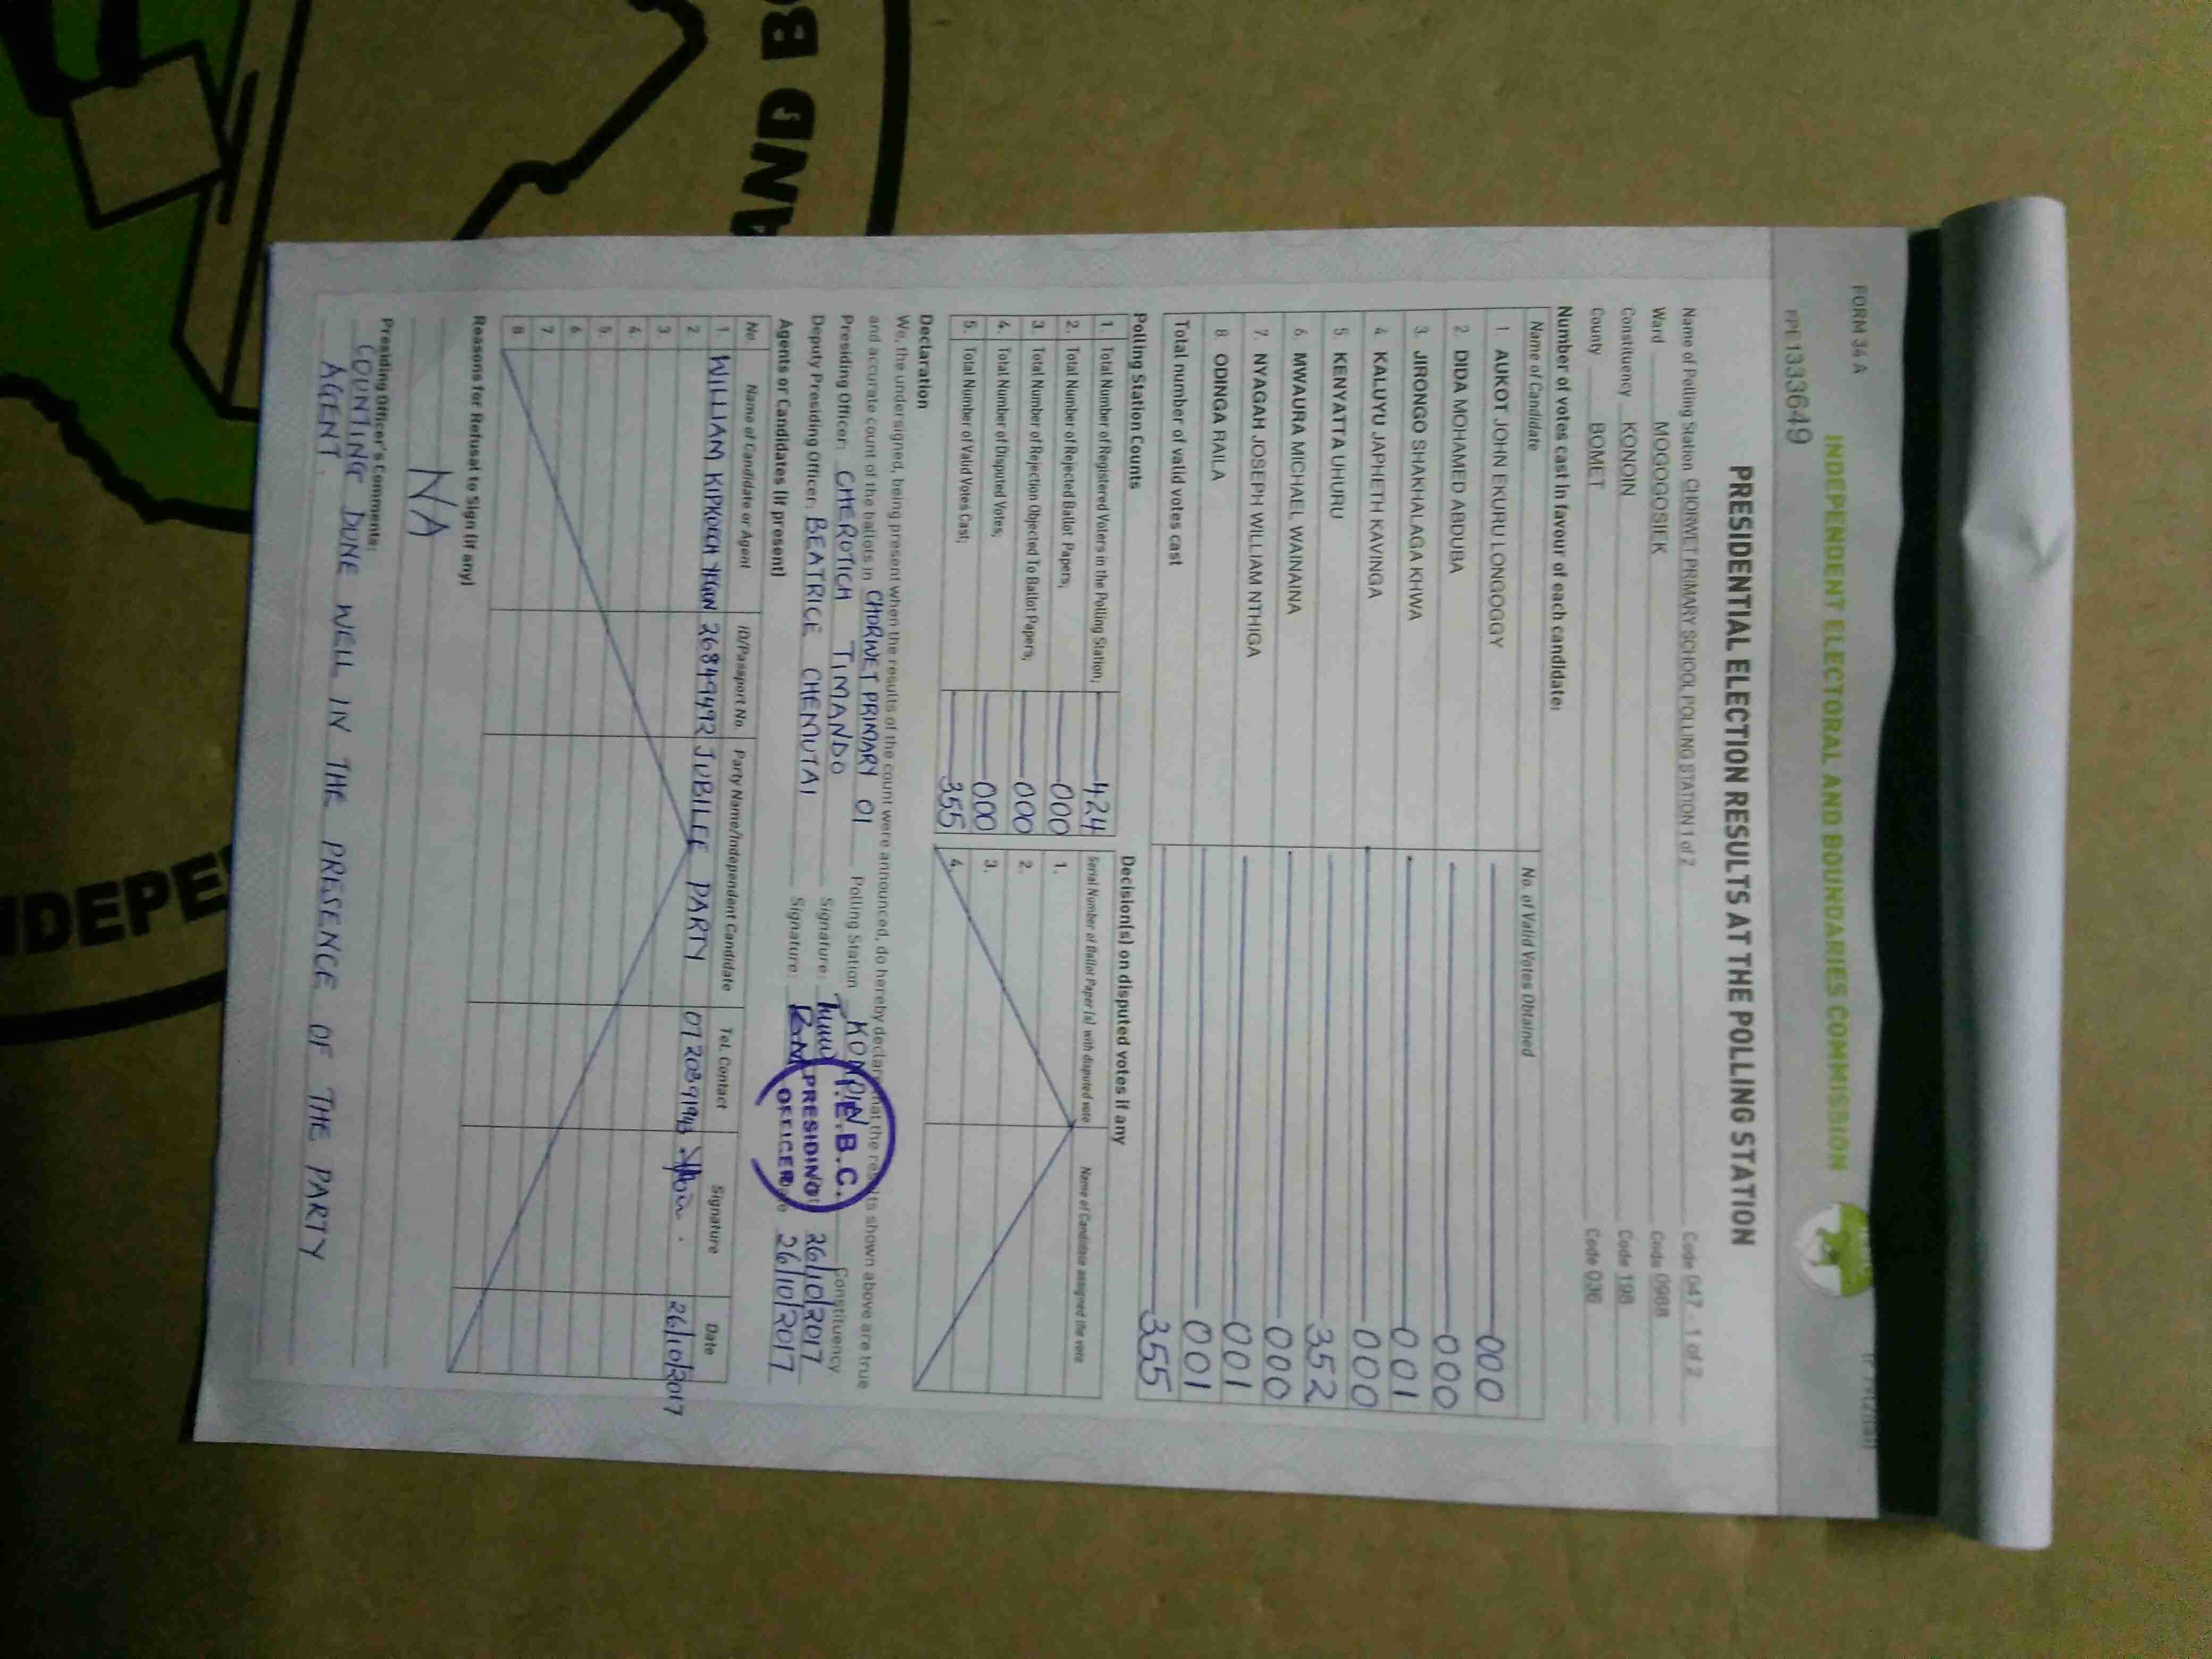 FORM 34 A
INDEPENDENT ELECTORAL AND BOUNDARIES COMMISSION
PRE 1333649
PRESIDENTIAL ELECTION RESULTS AT THE POLLING STATION
Name of Polling Station CHORWET PRIMARY SCHOOL POLLING STATION 1 of 2 Code 047 - 1 of 2
Ward MOGOGOSIEK Code 0988
Constituency KONOIN Code 198
County BOMET Code 036
Number of votes cast in favour of each candidate:
Name of Candidate No. of Valid Votes Obtained
1. AUKOT JOHN EKURU LONGOGGY 000
2. DIDA MOHAMED ABDUBA 000
3. JIRONGO SHAKHALAGA KHWA 001
4. KALUYU JAPHETH KAVINGA 000
5. KENYATTA UHURU 352
6. MWAURA MICHAEL WAINAINA 000
7. NYAGAH JOSEPH WILLIAM NTHIGA 001
8. ODINGA RAILA 001
Total number of valid votes cast 355
Polling Station Counts
1. Total Number of Registered Voters in the Polling Station; 424
2. Total Number of Rejected Ballot Papers; 000
3. Total Number of Rejection Objected To Ballot Papers; 000
4. Total Number of Disputed Votes; 000
5. Total Number of Valid Votes Cast; 355
Decision(s) on disputed votes if any
Serial Number of Ballot Paper (s) with disputed vote Name of Candidate assigned the vote
1.
2.
3.
4.
Declaration
We, the undersigned, being present when the results of the count were announced, do hereby declare that the results shown above are true
and accurate count of the ballots in CHORWET PRIMARY 01 Polling Station KONOIN Constituency
Presiding Officer: CHEROTICH TIMANDO Signature: 26/10/2017
Deputy Presiding Officer: BEATRICE CHEMUTAI Signature: 26/10/2017
I.E.B.C.
PRESIDING
OFFICER
Agents or Candidates (if present)
No. Name of Candidate or Agent ID/Passport No. Party Name/Independent Candidate Tel. Contact Signature Date
1 WILLIAM KIPKOECH 26849492 JUBILEE PARTY 26/10/2017
2
3.
4.
5.
6
7.
8
Reasons for Refusal to Sign (if any)
N/A
Presiding Officer's Comments:
COUNTING DONE WELL IN THE PRESENCE OF THE PARTY
AGENT.
AND
INDEPE